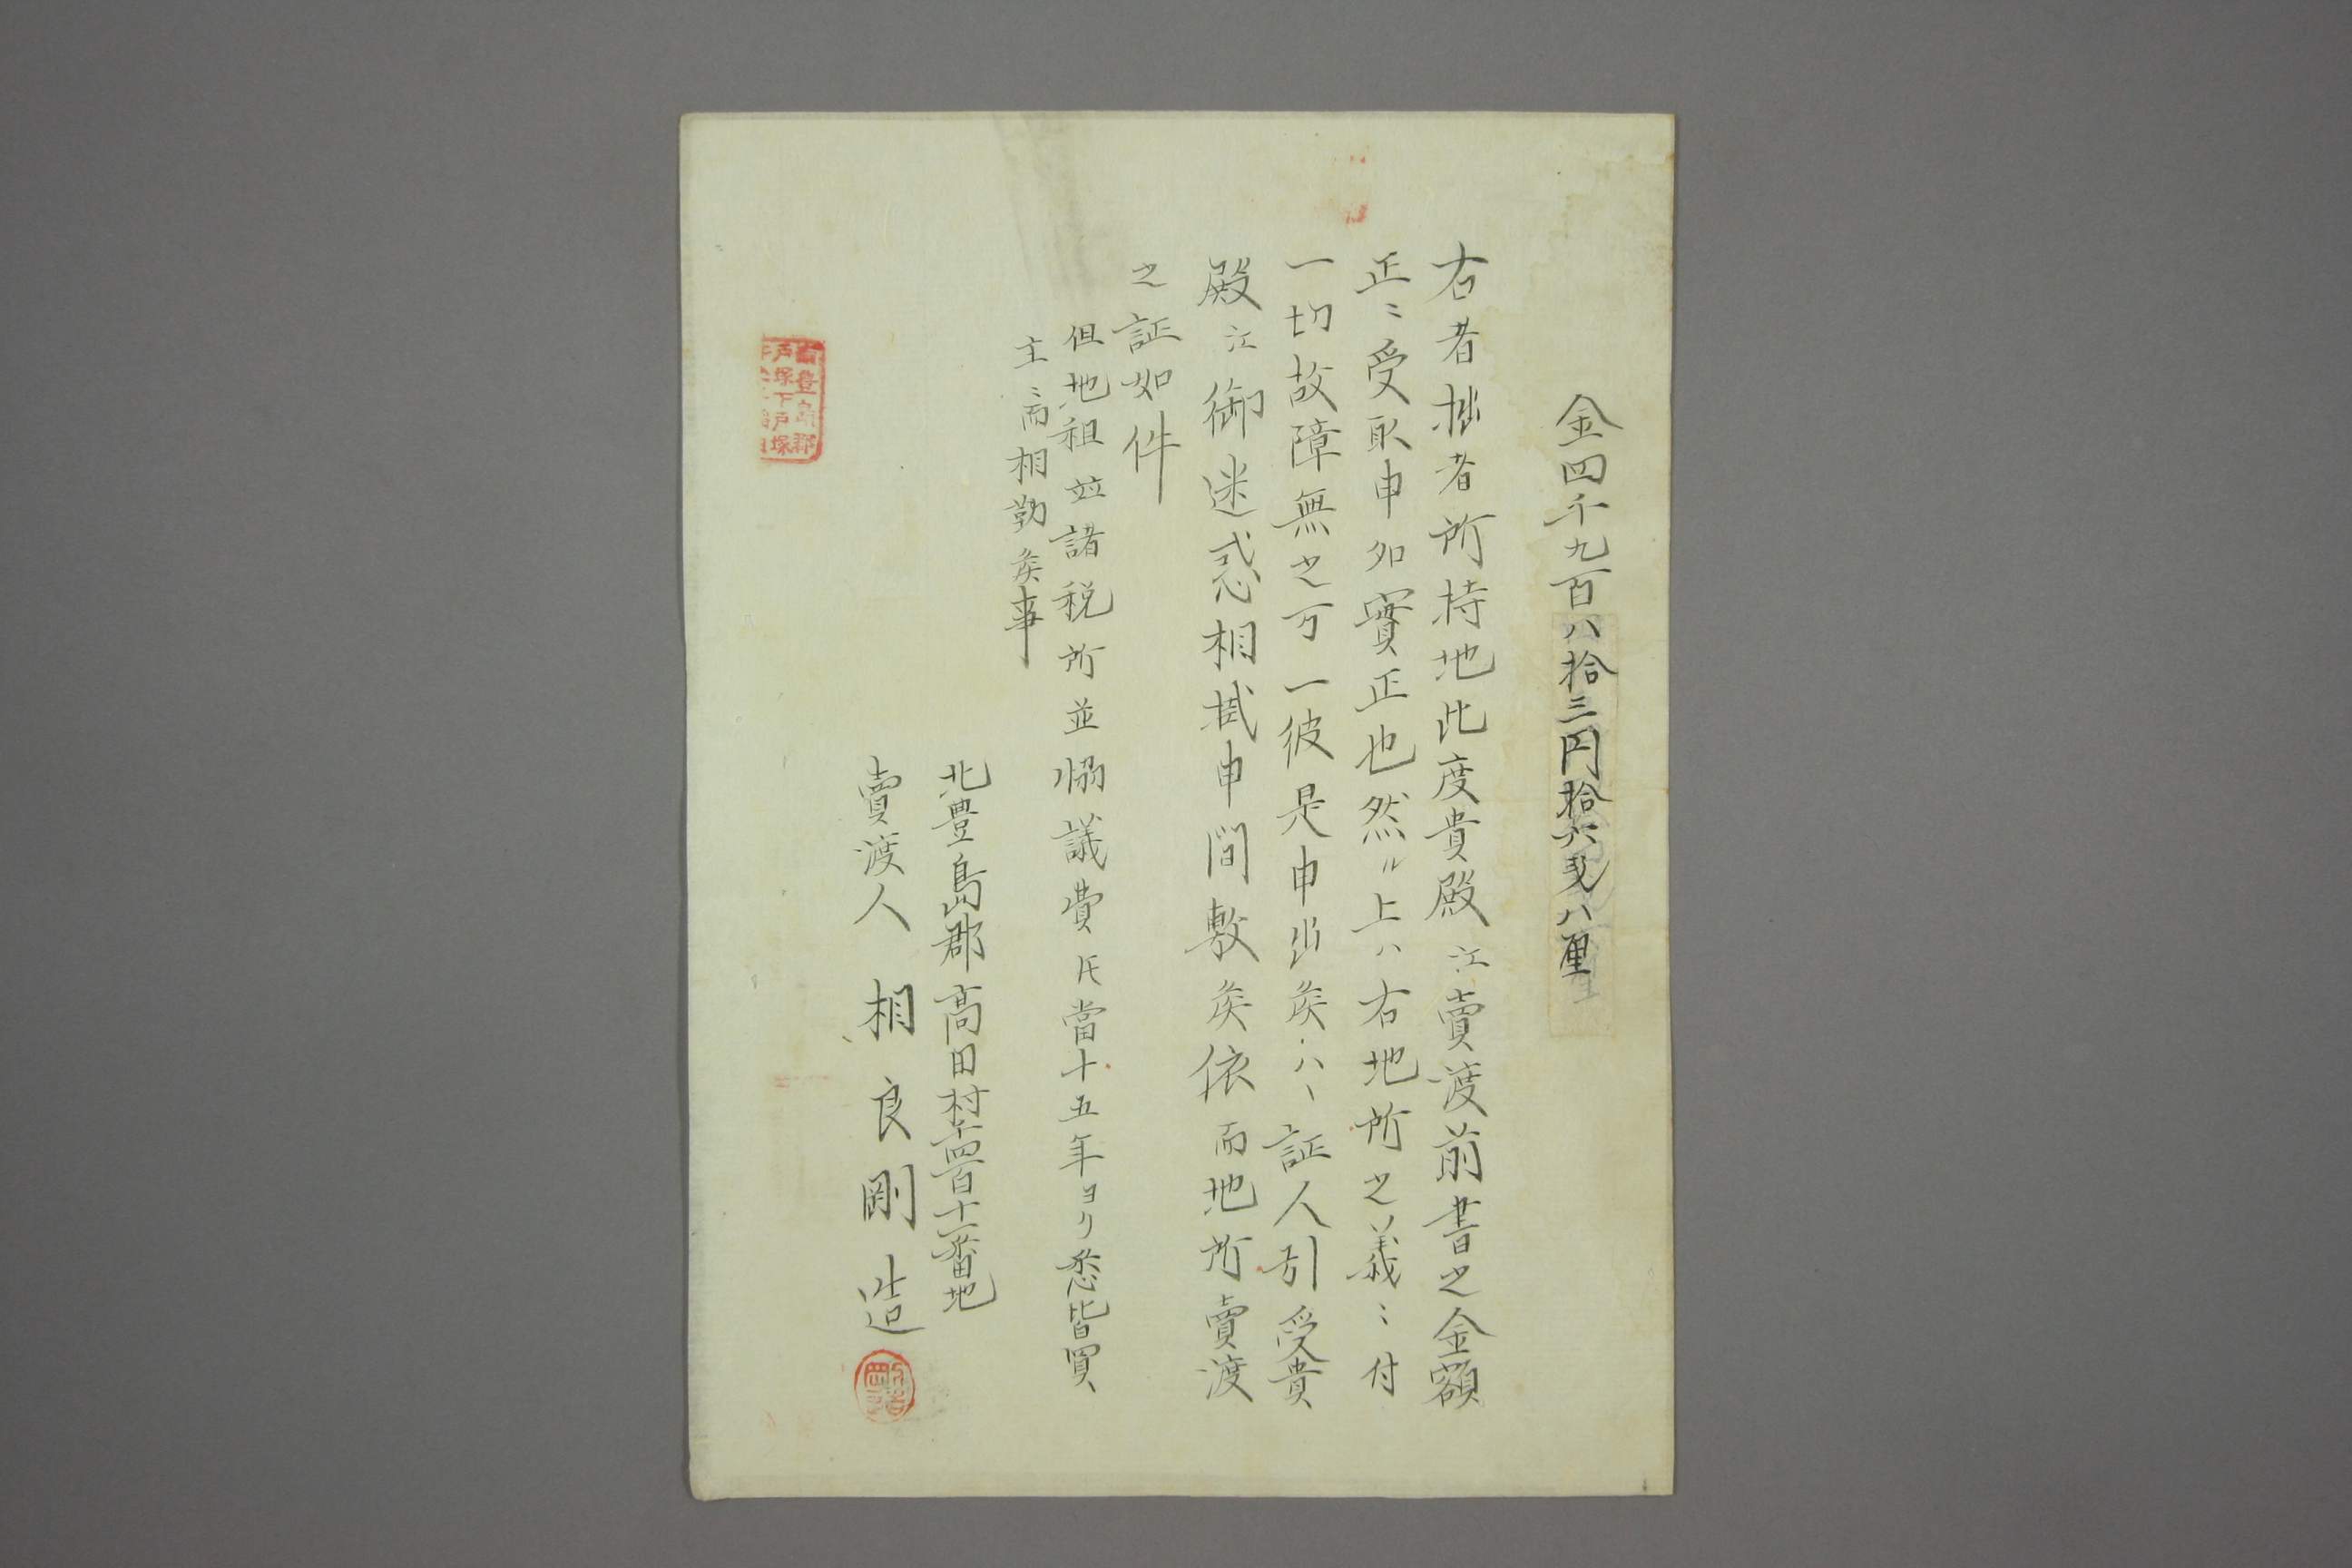 金四千九百八拾三円拾六戔八厘
右者拙者所持地此度貴殿江賣渡前書之金額
正ニ受取申処實正也然ル上ハ右地所之義ニ付
一切故障無之万一彼是申出候ハヽ証人引受貴
殿江御迷惑相掛申間敷候依而地所賣渡
之証如件
但地租並諸税所並協議費㪽當十五年ヨリ悉皆買
主ニ而相勤候事
北豊島郡高田村千四百十一番地
賣渡人 相良剛造
南豊島郡
戸塚下戸塚